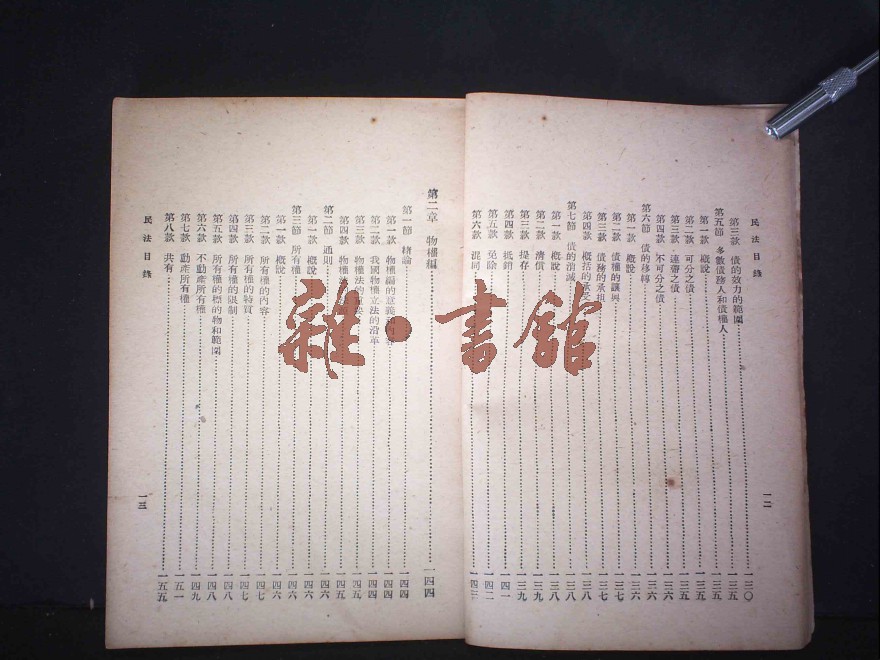 民法目錄
第三款 債的效力的範圍 一三〇
第五節 多數債務人和債權人 一三五
第一款 概說 一三五
第二款 可分之債 一三五
第三款 連帶之債 一三五
第四款 不可分之債 一三六
第六節 債的移轉 一三六
第一款 概說 一三六
第二款 債權的讓與 一三七
第三款 債務的承担 一三七
第四款 概括的承受 一三八
第七節 債的消滅 一三八
第一款 概說 一三八
第二款 清償 一三九
第三款 提存 一三九
第四款 抵銷 一四一
第五款 免除 一四二
第六款 混同 一四三
一二
第二章 物權編 一四四
第一節 緒論 一四四
第一款 物權編的意義
第二款 我國物權立法的沿革 一四四
第三款 物權法的 一四五
第四款 物權法 一四五
第二節 通則 一四六
第一款 概說 一四六
第三節 所有權 一四六
第一款 概說 一四六
第二款 所有權的內容 一四七
第三款 所有權的特質 一四七
第四款 所有權的限制 一四八
第五款 所有權的標的物和範圍 一四八
第六款 不動產所有權 一四九
第七款 動產所有權 一五一
第八款 共有 一五五
民法目錄
一三
雜·書館